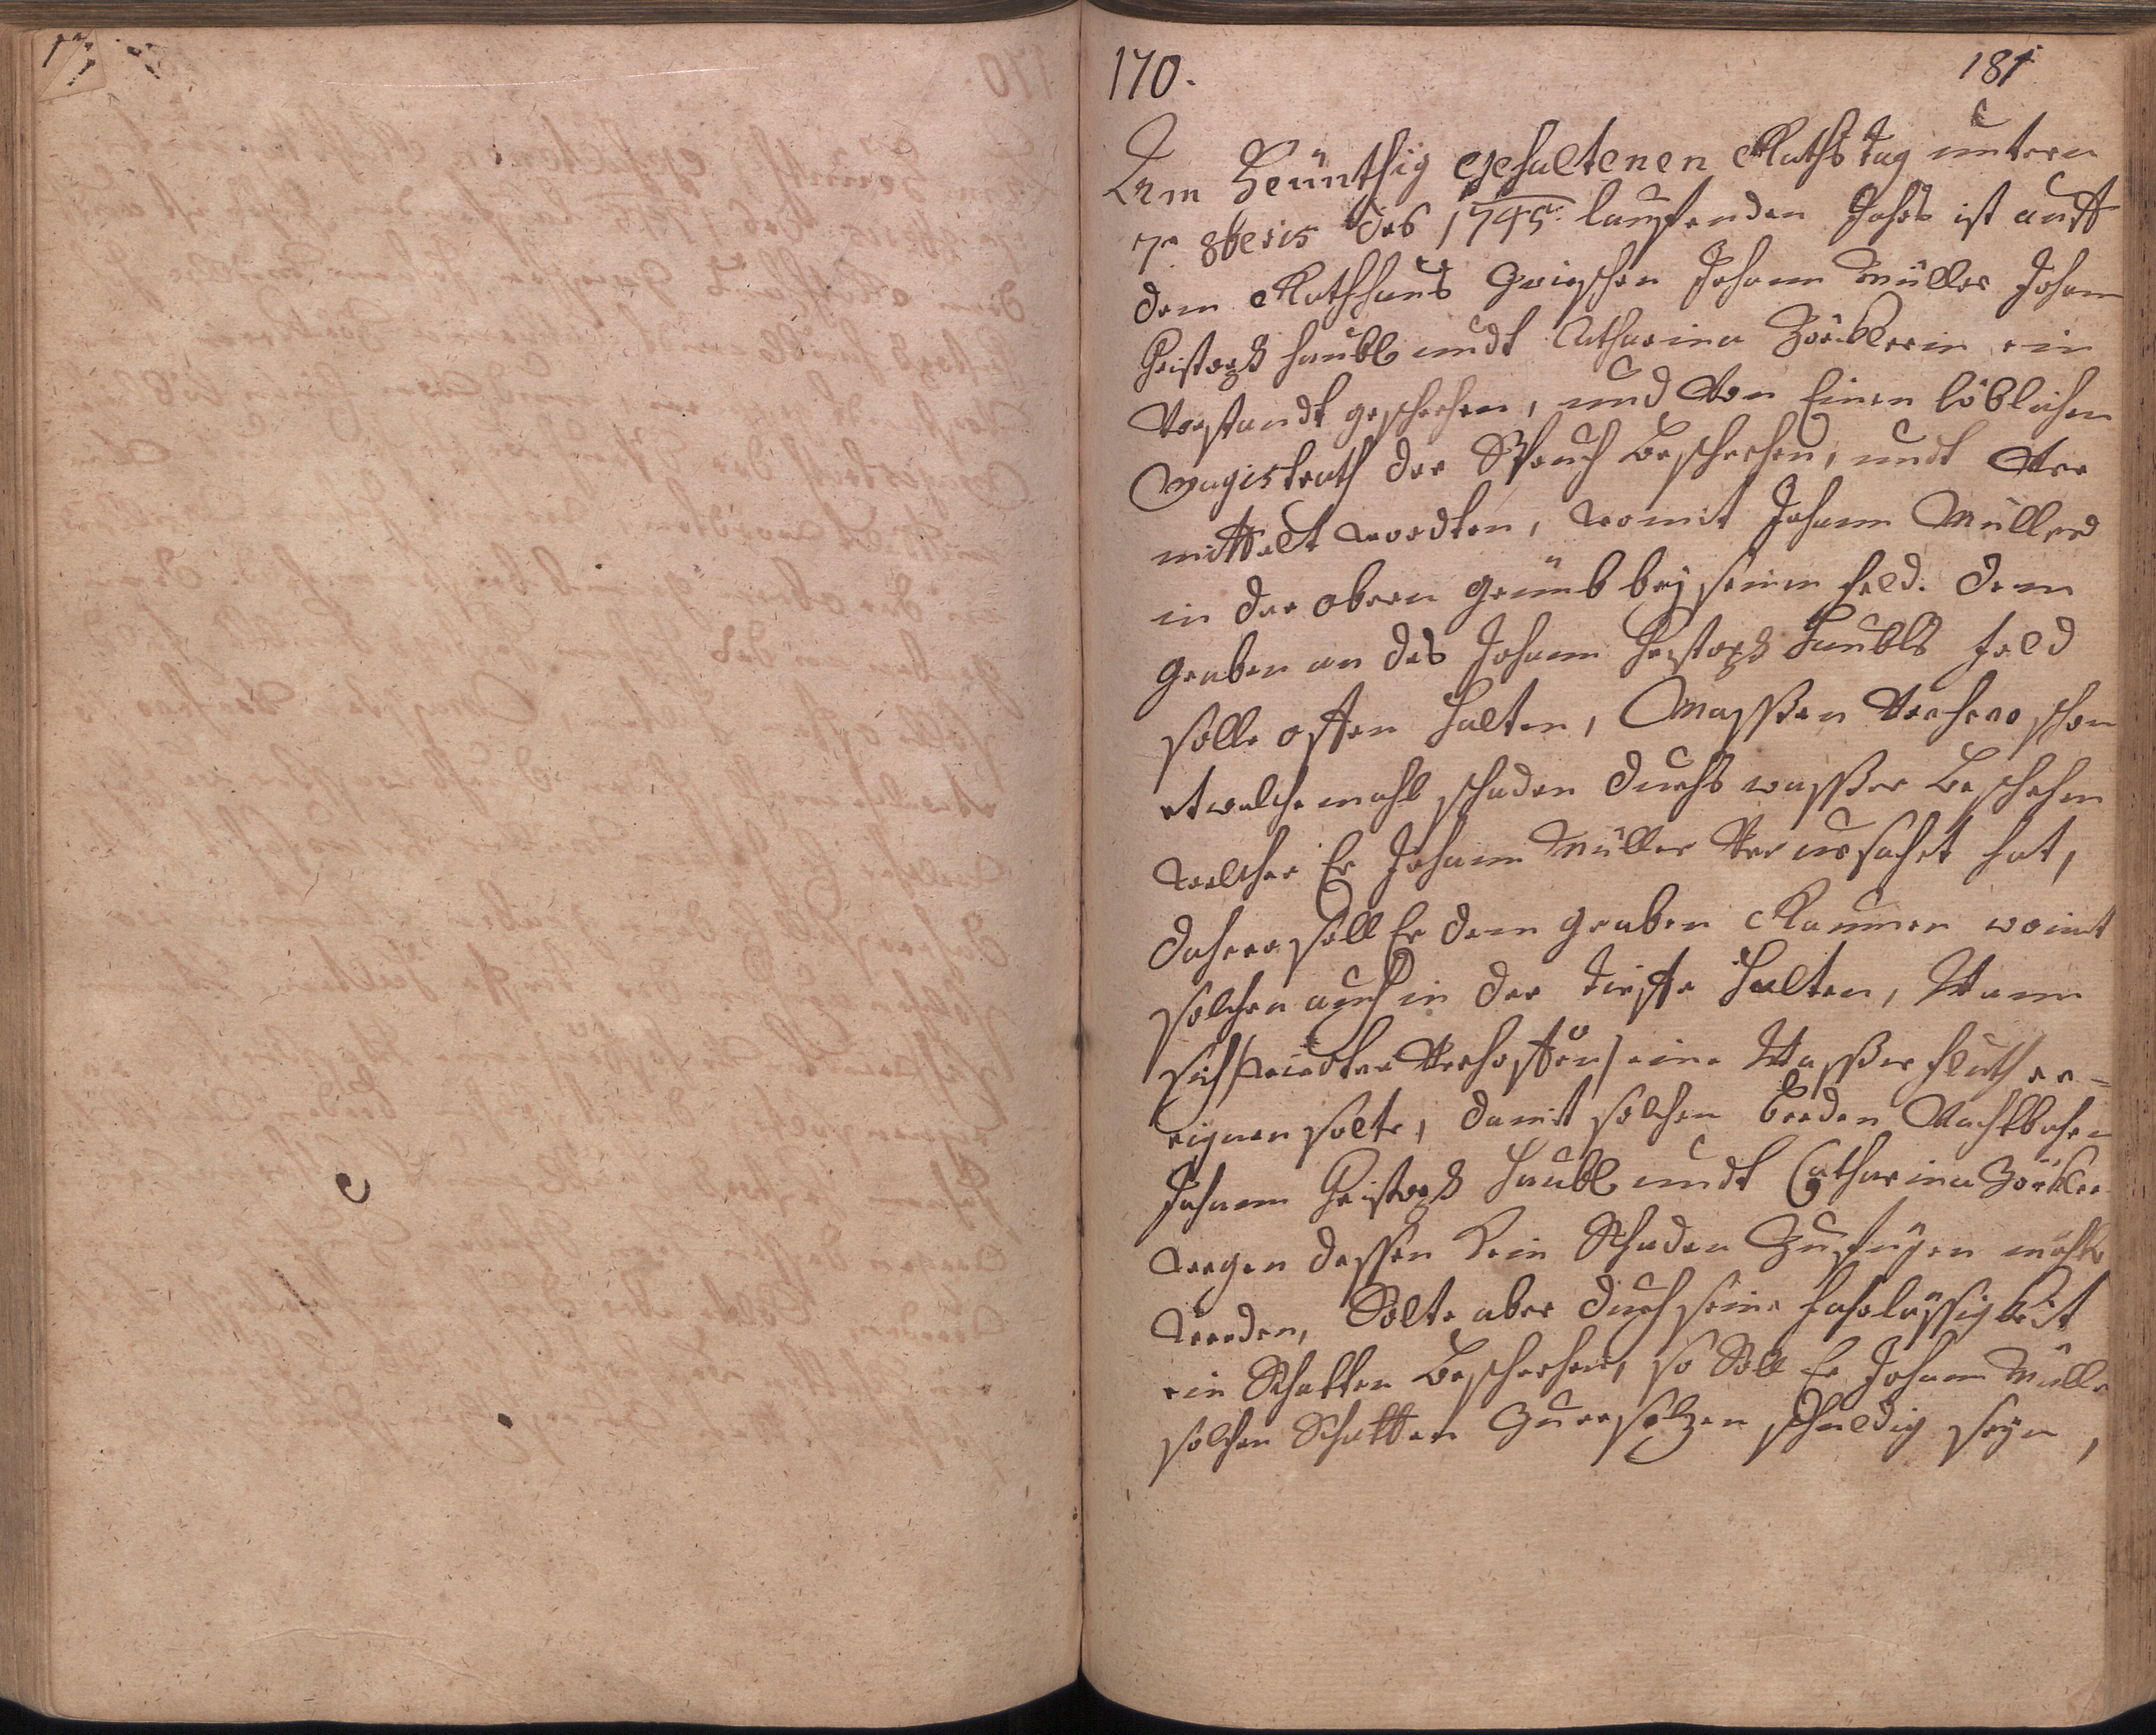 170.
181
Am Heünthig gehaltenen Rathstag untern
7n 8beris des 1745. lauffenden Jahrs ist auff
dem Rathhaus zwischen Johann Müller Johann
Christoph Haubl undt Catharina Zörklerin ein
Vorstandt geschehen, und Von Einen löblichen
Magistrath der Spruch beschehen, undt Ver
mittelt wordten, womit Johann Müller
in der obern grünb bey seinen feld. dem
graben an des Johann Christoph Haubls feld
solle offen halten, Massen Vorhero schon
etwelche mahl schaden durchs wasser beschehen
welcher Er Johann Müller Verursacht hat,
dahero soll Er dem graben Raumen womit
solchen auch in der tieffe halten, Wann
sich /: wieder Verhoffen :/ eine Wasser fluth er-
eignen solte, damit solchen beeden Nachtbahrn
Johann Christoph Haubl undt Catharina Zörkler
wegen dessen kein Schaden Zufügen möchte
werden, Solte aber durch seine fahrlässigkeit
ein Schatten beschehen, so Soll Er Johann Mülle
solchen Schatten zu ersetzen schuldig seyn,